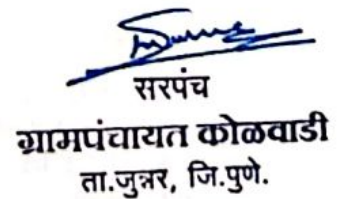 सरपंच
ग्रामपंचायत कोळवाडी
ता.जुन्नर, जि.पुणे.